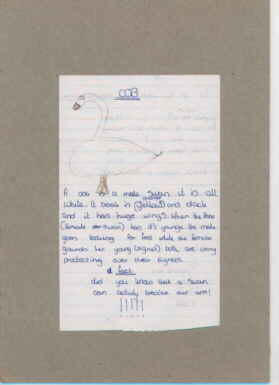 COB
A cob is a male swan it is all
white. It beak is orange (yellow) and black
and it has huge wings. When the Pen
(female swan) has it's younge the male
goes looking for food while the female
guards her young (signet) both are very
protecting over their signets.
a fact
did you know that a swan
can actually break our arm!
!!!!!